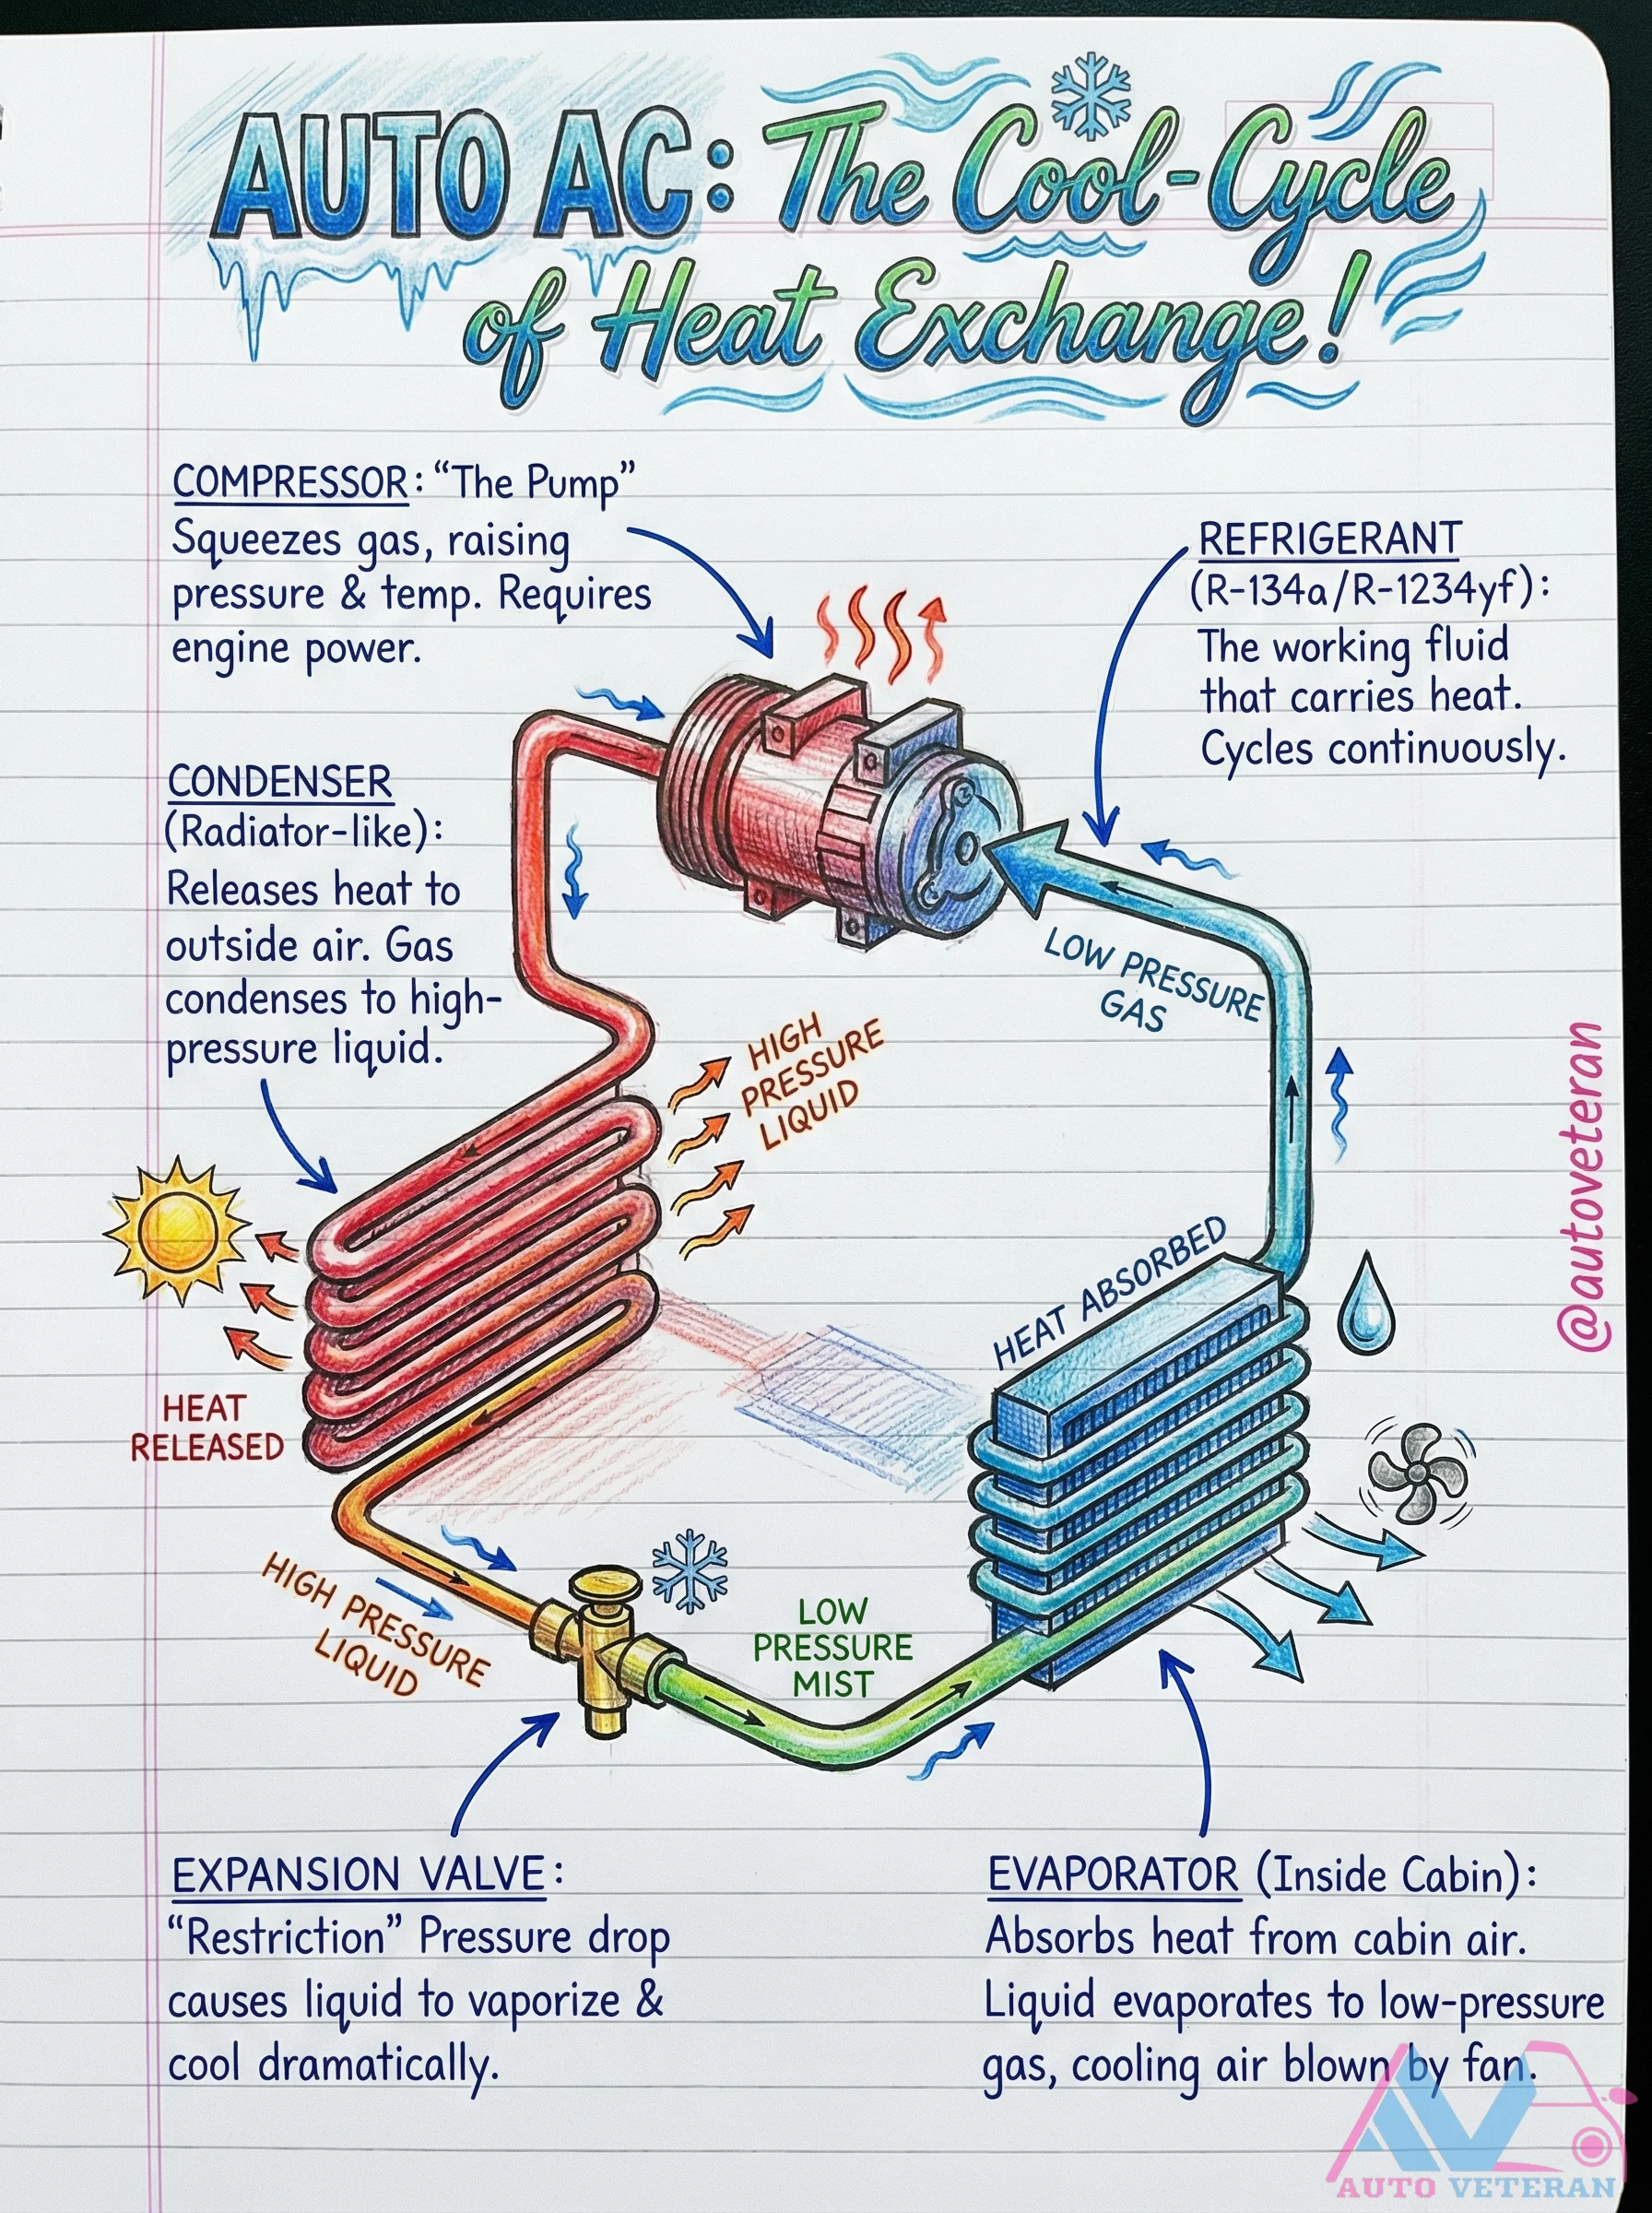 AUTO AC: The Cool-Cycle
of Heat Exchange!
COMPRESSOR: “The Pump”
Squeezes gas, raising
pressure & temp. Requires
engine power.
REFRIGERANT
(R-134a/R-1234yf):
The working fluid
that carries heat.
Cycles continuously.
CONDENSER
(Radiator-like):
Releases heat to
outside air. Gas
condenses to high-
pressure liquid.
LOW PRESSURE
GAS
HIGH
PRESSURE
LIQUID
@autoveteran
HEAT ABSORBED
HEAT
RELEASED
HIGH PRESSURE
LIQUID
LOW
PRESSURE
MIST
EXPANSION VALVE:
“Restriction” Pressure drop
causes liquid to vaporize &
cool dramatically.
EVAPORATOR (Inside Cabin):
Absorbs heat from cabin air.
Liquid evaporates to low-pressure
gas, cooling air blown by fan.
AV
AUTO VETERAN